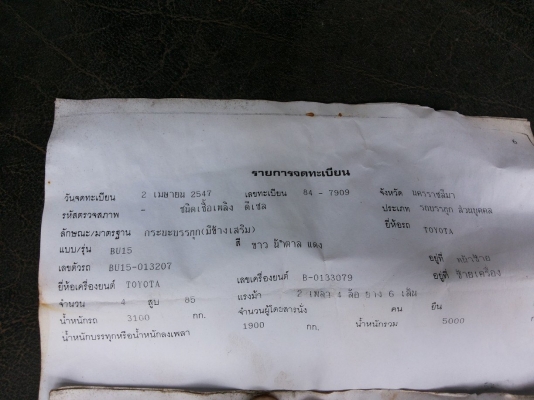 รายการจดทะเบียน
วันจดทะเบียน 2 เมษายน 2547 เลขทะเบียน 84 - 7909 จังหวัด นครราชสีมา
รหัสตรวจสภาพ - ชนิดเชื้อเพลิง ดีเซล ประเภท รถบรรทุก ส่วนบุคคล
ลักษณะ/มาตรฐาน กระบะบรรทุก(มีข้างเสริม) ยี่ห้อรถ TOYOTA
แบบ/รุ่น BU15 สี ขาว น้ำตาล แดง
เลขตัวรถ BU15-013207 อยู่ที่ หน้าซ้าย
ยี่ห้อเครื่องยนต์ TOYOTA เลขเครื่องยนต์ B-0133079 อยู่ที่ ซ้ายเครื่อง
จำนวน 4 สูบ 85 แรงม้า 2 เพลา 4 ล้อ ยาง 6 เส้น
น้ำหนักรถ 3100 กก. จำนวนผู้โดยสารนั่ง คน ยืน
น้ำหนักบรรทุกหรือน้ำหนักลงเพลา 1900 กก. น้ำหนักรวม 5000